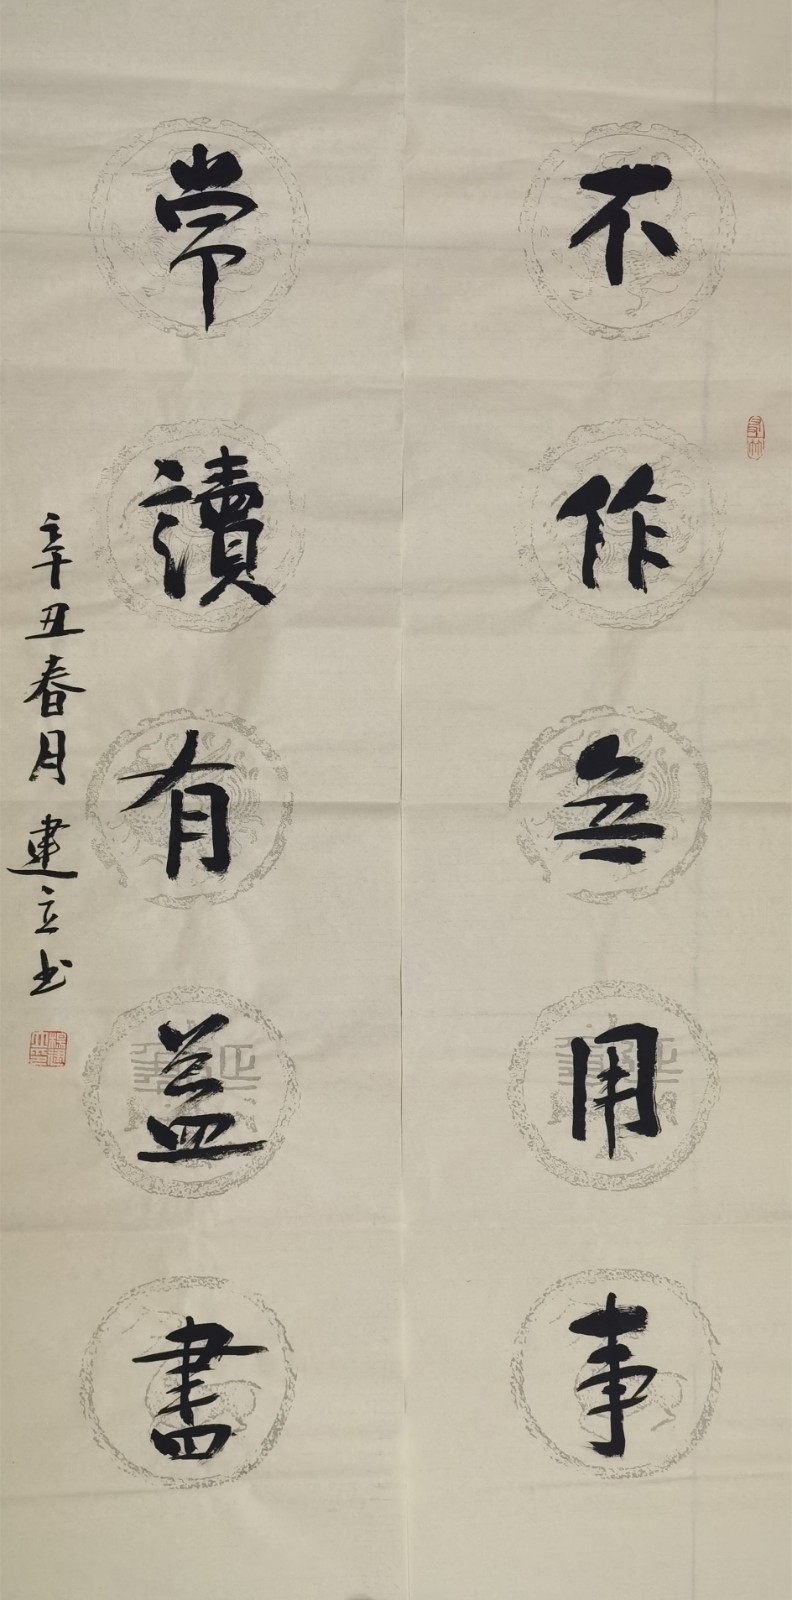 不作無用事
常讀有益書
辛丑春月建立书